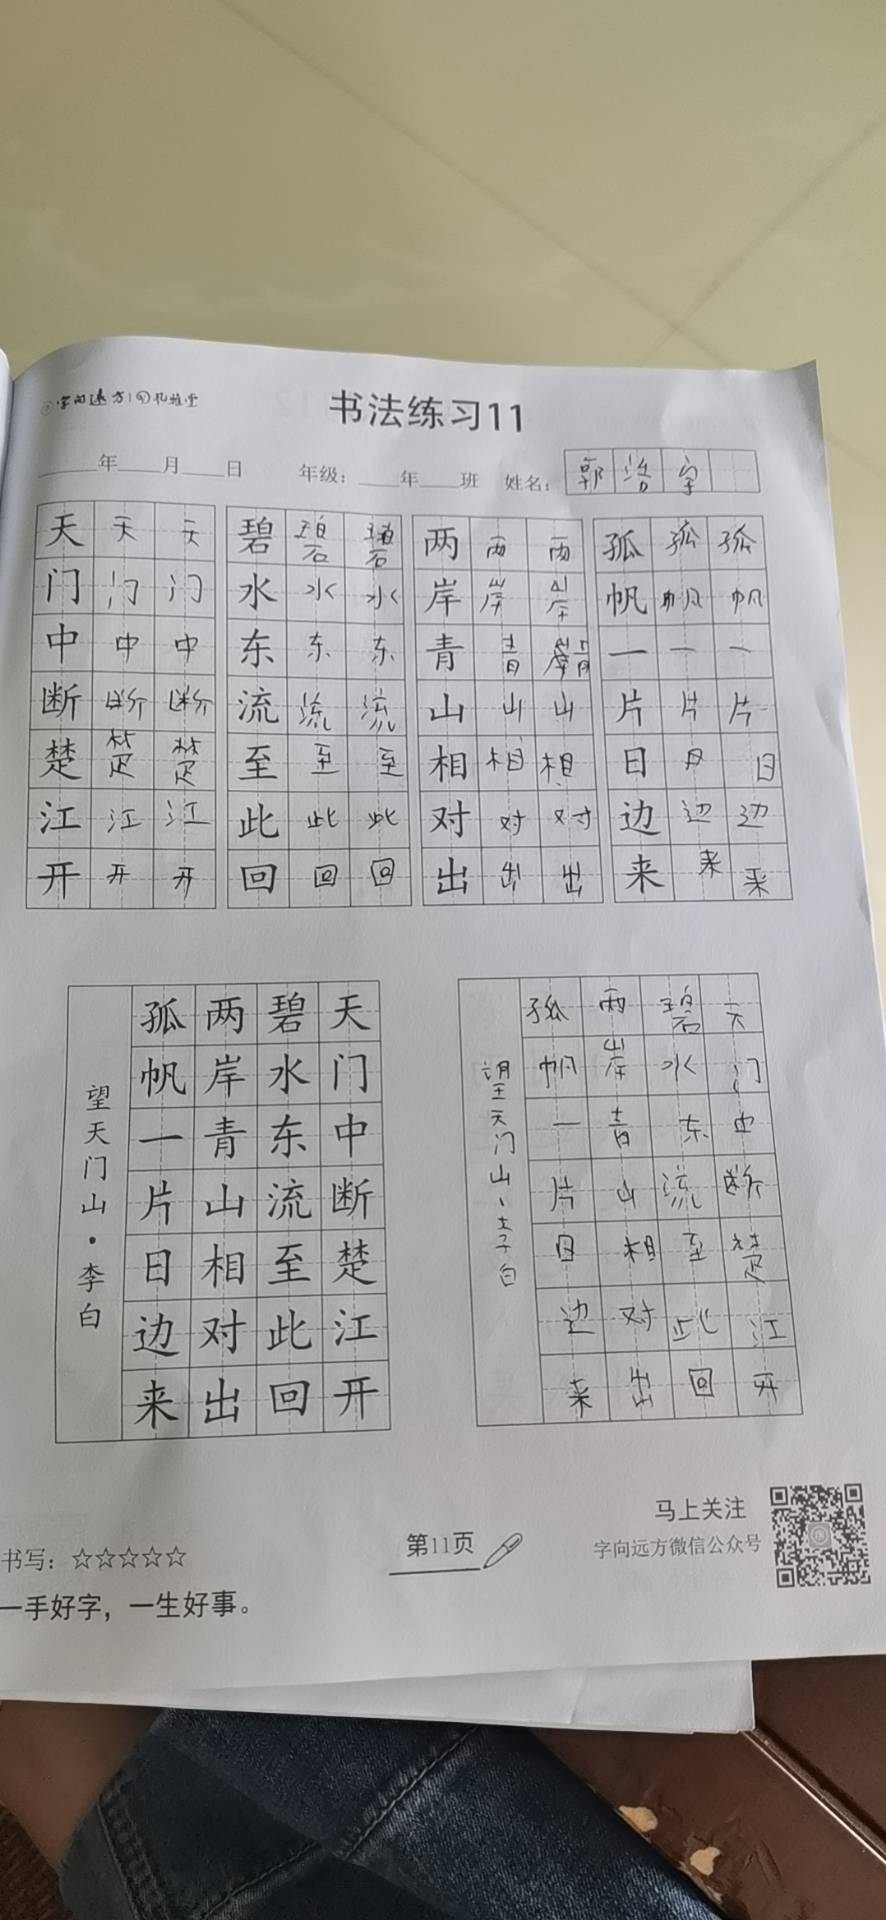 字向远方 孔雅堂
书法练习11
年 月 日 年级: 年 班 姓名: 郭浩宇
天 天 天 碧 碧 碧 两 两 两 孤 孤 孤
门 门 门 水 水 水 岸 岸 岸 帆 帆 帆
中 中 中 东 东 东 青 青 一 一 一
断 断 断 流 流 流 山 山 山 片 片 片
楚 楚 楚 至 至 至 相 相 相 日 日 日
江 江 江 此 此 此 对 对 对 边 边 边
开 开 开 回 回 回 出 出 出 来 来 来
天门中断楚江开
碧水东流至此回
两岸青山相对出
孤帆一片日边来
望天门山·李白
天门中断楚江开
碧水东流至此回
两岸青山相对出
孤帆一片日边来
望天门山、李白
马上关注
字向远方微信公众号
第11页
书写:☆☆☆☆☆
一手好字，一生好事。